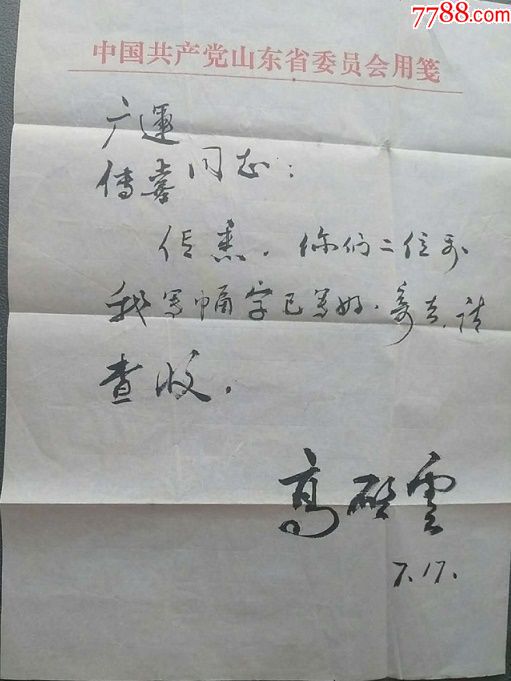 7788.com
中国共产党山东省委员会用笺
广运
传喜同志：
信悉。你们二位要
我写幅字已写好。寄去，请
查收。
高启云
7.17.